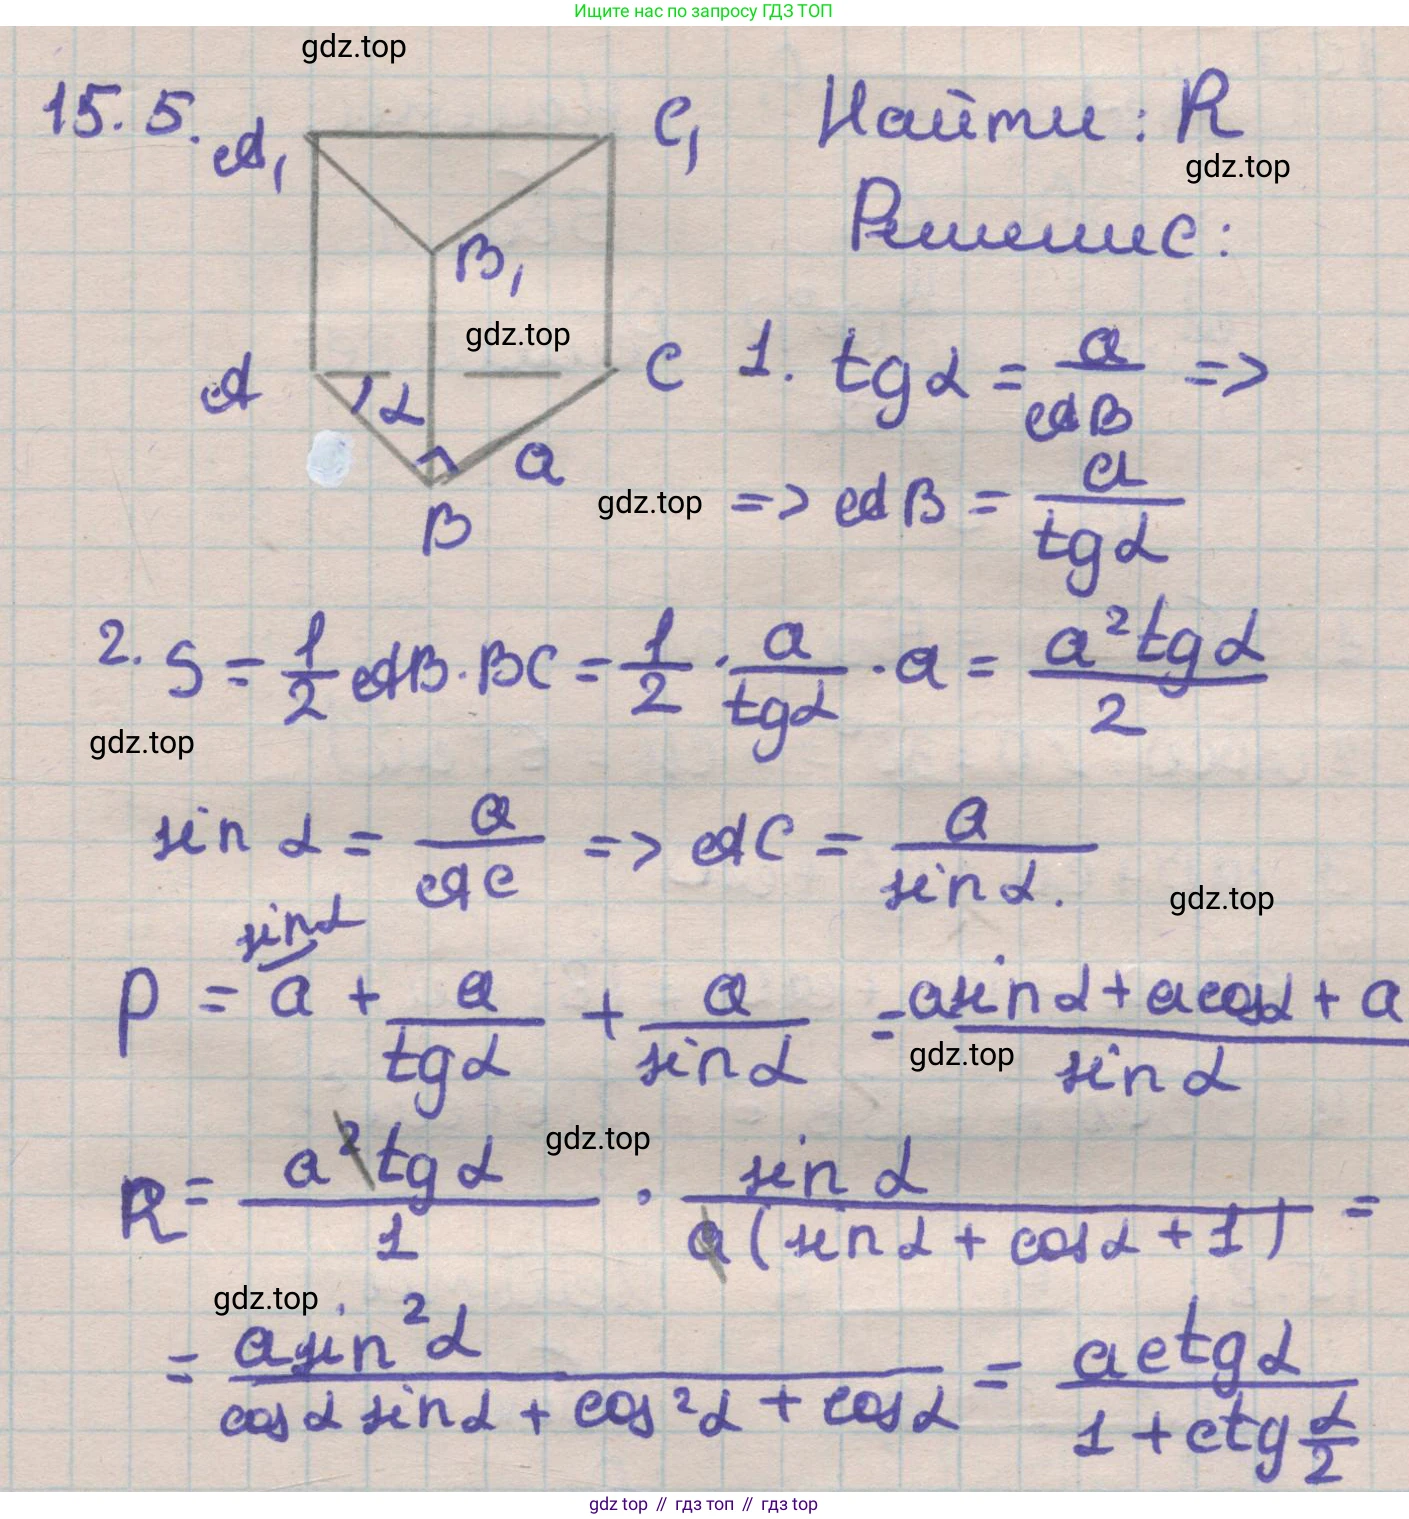 Ищите нас по запросу ГДЗ ТОП
gdz.top
15.5.
A₁
C₁
Найти: R
gdz.top
Решение:
B₁
gdz.top
A
C
α
a
B
1. tgα = a/AB =>
gdz.top
=> AB = a/tgα
2. S = 1/2 AB · BC = 1/2 · a/tgα · a = a² tgα/2
gdz.top
sin α = a/AC => AC = a/sin α.
gdz.top
sin α
P = a + a/tgα + a/sin α = (a sin α + a cos α + a)/sin α
gdz.top
gdz.top
R = a² tgα/1 · sin α/(a(sin α + cos α + 1)) =
gdz.top
= a sin² α/(cos α sin α + cos² α + cos α) = a ctg α/(1 + ctg α/2)
gdz top // гдз топ // гдз top